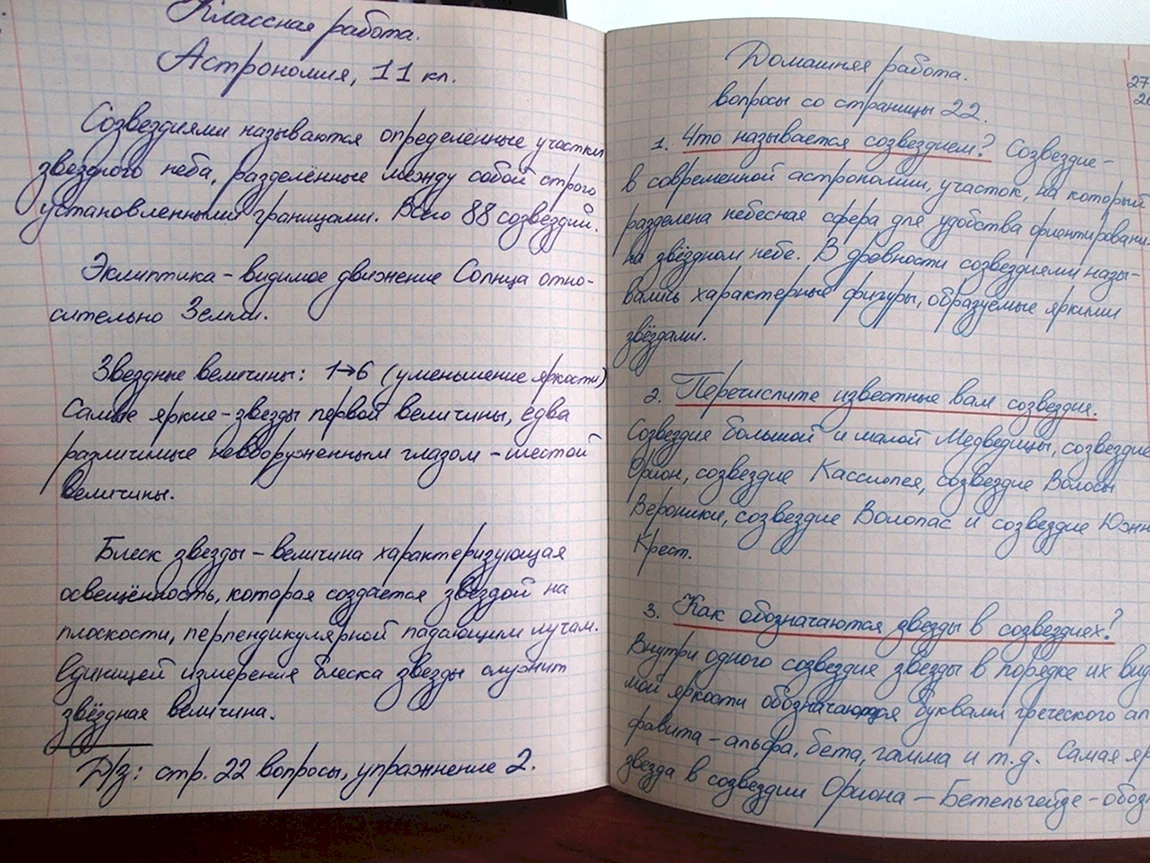 Классная работа.
Астрономия, 11 кл.
Созвездиями называются определенные участки
звездного неба, разделённые между собой строго
установленными границами. Всего 88 созвездий.
Эклиптика - видимое движение Солнца отно-
сительно Земли.
Звездные величины: 1→6 (уменьшение яркости)
Самые яркие - звезды первой величины, едва
различимые невооруженным глазом - шестой
величины.
Блеск звезды - величина характеризующая
освещённость, которая создается звёздой на
плоскости, перпендикулярной падающим лучам.
Единицей измерения блеска звезды служит
звёздная величина.
Д/з: стр. 22 вопросы, упражнение 2.
Домашняя работа.
27
вопросы со страницы 22.
1. Что называется созвездием? Созвездие -
в современной астрономии, участок, на который
разделена небесная сфера для удобства ориентировани
на звёздном небе. В древности созвездиями назы-
вались характерные фигуры, образуемые яркими
звёздами.
2. Перечислите известные вам созвездие.
Созвездие большой и малой Медведицы, созвездие
Орион, созвездие Кассиопея, созвездие Волосы
Вероники, созвездие Волопас и созвездие Южн
Крест.
3. Как обозначаются звезды в созвездиех?
Внутри одного созвездие звезды в порядке их вид
мой яркости обозначаются буквами греческого ал
фавита - альфа, бета, гамма и т.д. Самая яр
звезда в созвездии Ориона — Бетельгейзе - обозн